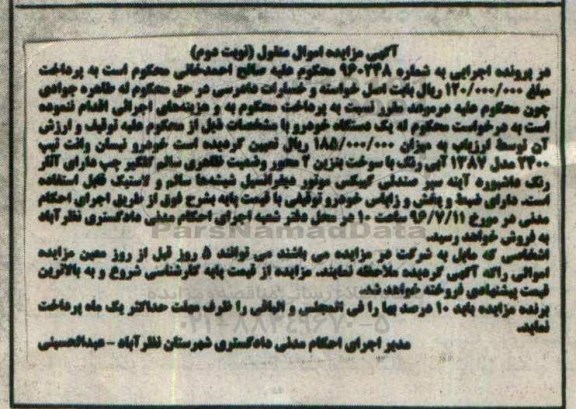 آگهی مزایده اموال منقول (نوبت دوم)
در پرونده اجرایی به شماره ۹۶۰۲۴۸ محکوم علیه صالح احمدخانی محکوم است به پرداخت
مبلغ ۱۲۰/۰۰۰/۰۰۰ ریال بابت اصل خواسته و خسارات دادرسی در حق محکوم له طاهره جوادی
چون محکوم علیه درموعد مقرر نسبت به پرداخت محکوم به و هزینه‌های اجرائی اقدام ننموده
است به درخواست محکوم له یک دستگاه خودرو با مشخصات ذیل از محکوم علیه توقیف و ارزش
آن توسط ارزیاب به میزان ۱۸۵/۰۰۰/۰۰۰ ریال تعیین گردیده است خودرو نیسان وانت تیپ
۲۴۰۰ مدل ۱۳۸۷ آبی رنگ با سوخت بنزین ۲ محور وضعیت ظاهری سالم گلگیر چپ دارای آثار
رنگ داشبورد آینه سپر صندلی گیبکس موتور دیفرانسیل شیشه‌ها سالم و لاستیک قابل استفاده
است. دارای ضبط و پخش و زاپاس خودرو توقیفی با قیمت پایه بشرح فوق از طریق اجرای احکام
مدنی در مورخ ۹۶/۷/۱۱ ساعت ۱۰ در محل دفتر شعبه اجرای احکام مدنی دادگستری نظرآباد
به فروش خواهد رسید.
اشخاصی که مایل به شرکت در مزایده می باشند می توانند ۵ روز قبل از روز معین مزایده
اموالی راکه آگهی گردیده ملاحظه نمایند. مزایده از قیمت پایه کارشناسی شروع و به بالاترین
قیمت پیشنهادی فروخته خواهد شد.
برنده مزایده باید ۱۰ درصد بها را فی المجلس و الباقی را ظرف مهلت حداکثر یک ماه پرداخت
نماید.
مدیر اجرای احکام مدنی دادگستری شهرستان نظرآباد - عبدالحسینی
ParsNamadData
۰۲۱-۸۸۳۴۹۶۷۰-۵